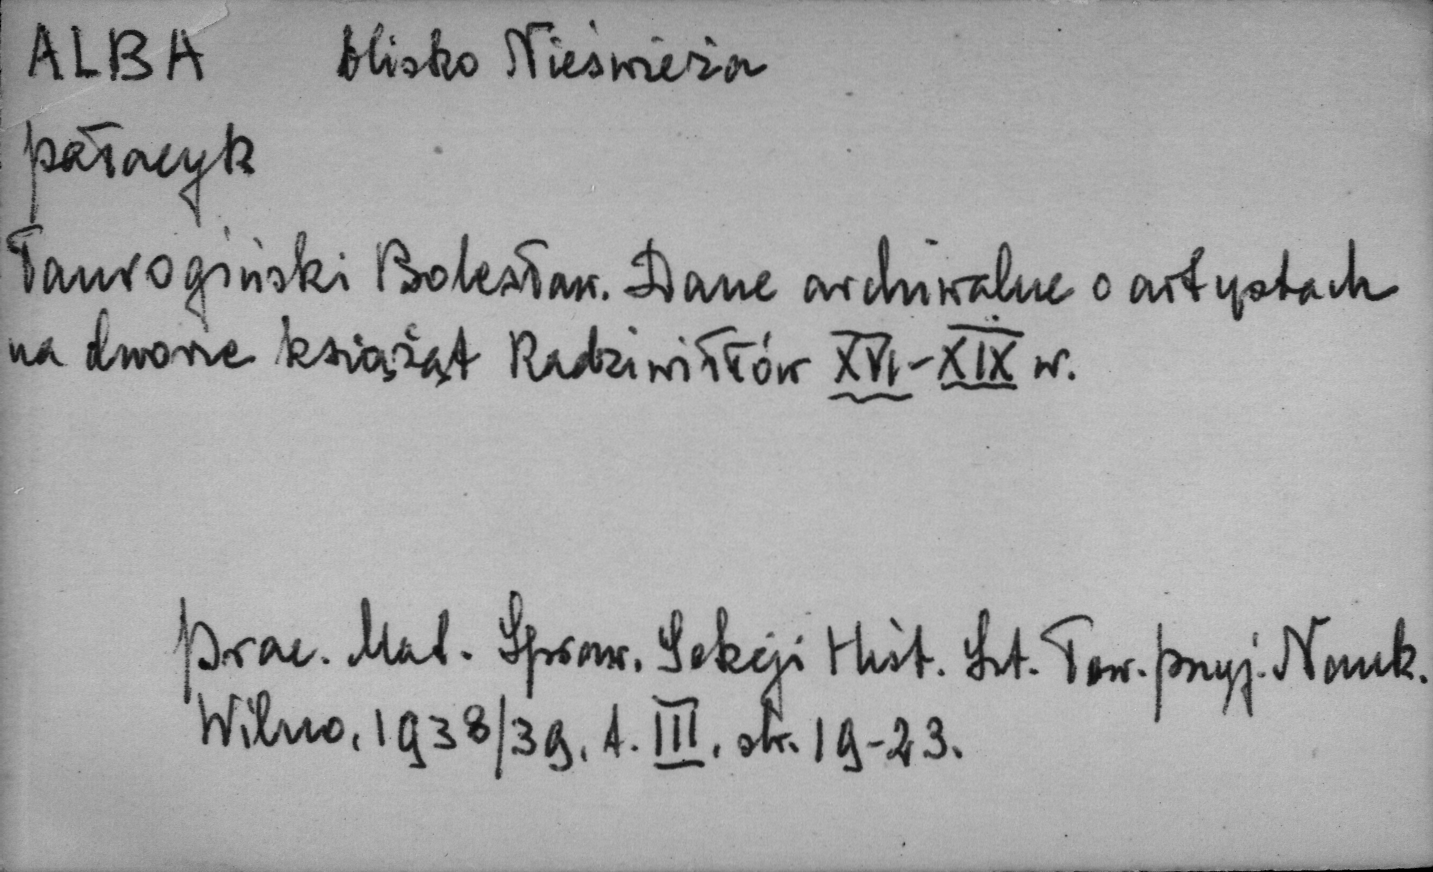 ALBA blisko Nieświeża
pałacyk
Taurogiński Bolesław. Dane archiwalne o artystach
na dworze książąt Radziwiłłów XVI-XIX w.
prac. Mat. Spraw. Sekcji Hist. Szt. Tow. przyj. Nauk.
Wilno, 1938/39, t. III, str. 19-23.